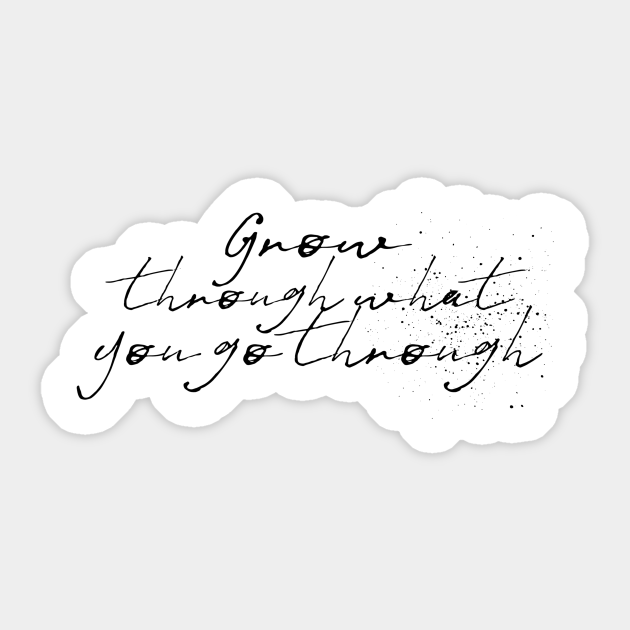 Grow
through what
you go through